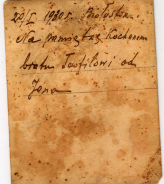 20/I 1930 r. Białystok.
Na pamiątkę Kochanem
bratu Teofilowi od
Jena